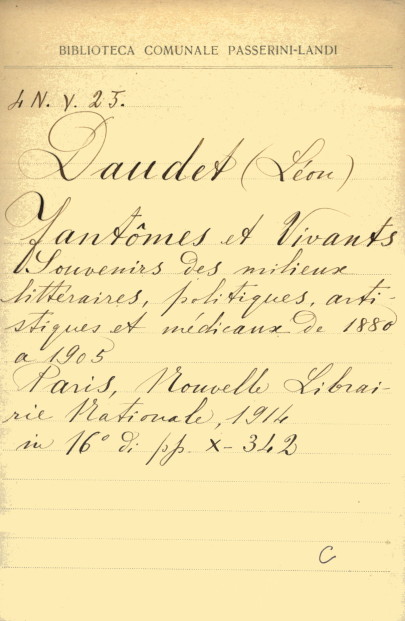 BIBLIOTECA COMUNALE PASSERINI-LANDI
4 N. V. 25.
Daudet (Léon)
Fantômes et Vivants
Souvenirs des milieux
littéraires, politiques, arti-
stiques et médicaux de 1880
a 1905
Paris, Nouvelle Librai-
rie Nationale, 1914
in 16° di pp. X-342
C